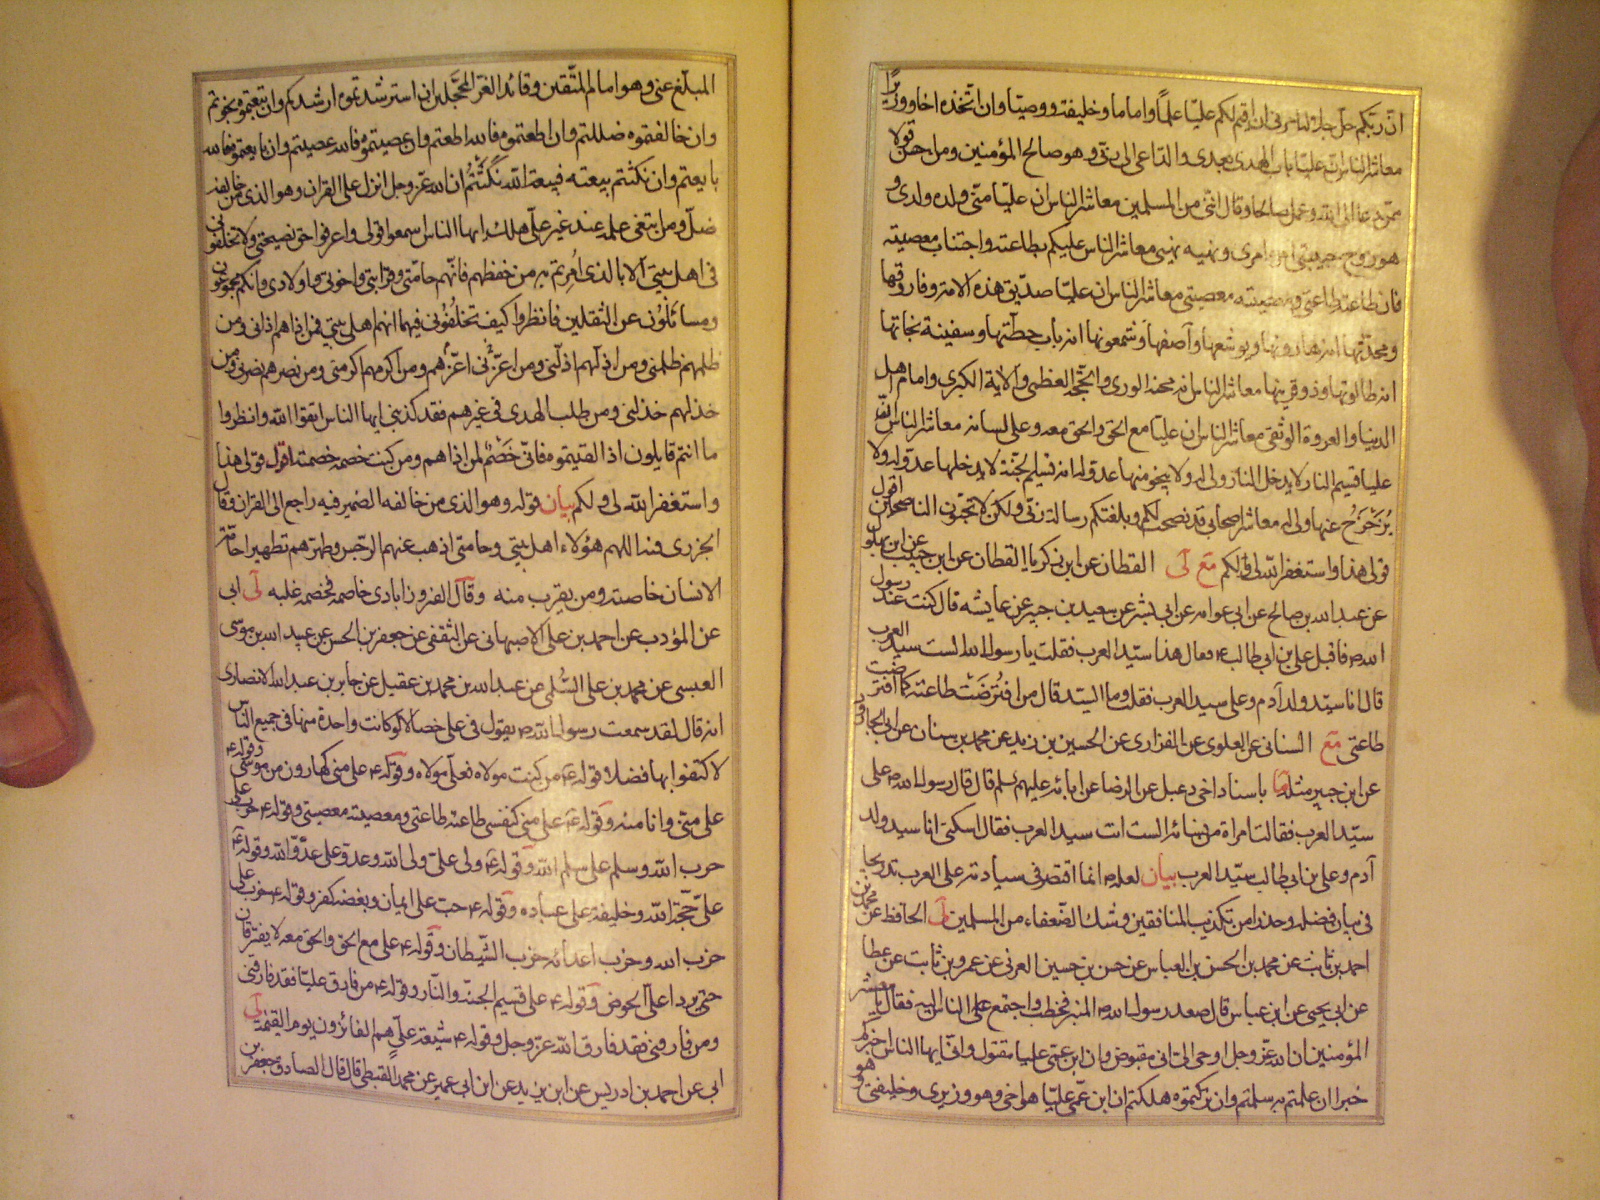 ان ربكم جل جلاله امرنى ان اقيم لكم عليّا علما واماما وخليفة ووصيّا وان اتّخذه اخا ووزيرًا
معاشر الناس انّ عليّا باب الهدى بعدى والدّاعى الى ربّى وهو صالح المؤمنين ومن احسن قولا
ممّن دعا الى الله وعمل صالحا وقال انّنى من المسلمين معاشر الناس ان عليّا منّى ولده ولدى و
هو زوج حبيبتى امره امرى ونهيه نهيى معاشر الناس عليكم بطاعته واجتناب معصيته
فان طاعته طاعتى ومعصيته معصيتى معاشر الناس ان عليّا صدّيق هذه الامة وفاروقها
ومحدّثها انه هارونها ويوشعها وآصفها وشمعونها انه باب حطّتها وسفينة نجاتها
انه طالوتها وذو قرنيها معاشر الناس انه محنة الورى والحجّة العظمى والاية الكبرى وامام اهل
الدنيا والعروة الوثقى معاشر الناس ان عليّا مع الحق والحق معه وعلى لسانه معاشر الناس انّ
عليا قسيم النار لا يدخل النار ولى له ولا ينجو منها عدو له انه قسيم الجنّة لا يدخلها عدو له ولا
يُزَحْزَحُ عنها ولى له معاشر اصحابى قد نصحت لكم وبلّغتكم رسالة ربّى ولكن لا تحبّون الناصحين اقول
قولى هذا واستغفر الله لى ولكم مع لى القطان عن ابن زكريا القطان عن ابن حبيب عن ابن بهلول
عن عبد الله بن صالح عن ابى عوانه عن ابى بشر عن سعيد بن جبير عن عايشه قال كنت عند رسول
الله ص فاقبل على بن ابى طالب ع فقال هذا سيّد العرب فقلت يا رسول الله الست سيد العرب
قال انا سيّد ولد آدم وعلى سيد العرب فقلت وما السيّد قال من افتُرضَتْ طاعته كما افترضت
طاعتى مع السنانى عن العلوى عن الفزارى عن الحسين بن زيد عن محمد بن سنان عن ابى الجارود
عن ابن جبير مثله ما باسناد اخى دعبل عن الرضا عن ابائه عليهم سلم قال قال رسول الله ص على
سيّد العرب فقالت امراة من نسائه الست انت سيد العرب فقال اسكتى انا سيد ولد
آدم وعلى بن ابى طالب سيّد العرب بيان لعله ص انما اقتصر فى سيادته على العرب تدريجا
فى بيان فضله وحذرا من تكذيب المنافقين وشك الضّعفاء من المسلمين لى الحافظ عن محمد بن
احمد بن ثابت عن محمد بن الحسن بن العباس عن حسن بن حسين العرنى عن عمرو بن ثابت عن عطا
عن ابى يحيى عن ابن عباس قال صعد رسول الله ص المنبر فخطب واجتمع على الناس اليه فقال يا معشر
المؤمنين ان الله عزّ وجل اوحى الى انى مقبوض وان ابن عمّى عليا مقتول وانّى ايها الناس اخبركم
خبرا ان علمتم به سلمتم وان تركتموه هلكتم ان ابن عمّى عليّا هو اخى وهو وزيرى وخليفتى وهو
المبلّغ عنى وهو امام المتّقين وقائد الغر المحجّلين ان استرشدتموه ارشدكم وان تبعتموه نجوتم
وان خالفتموه ضللتم وان اطعتموه فالله اطعتم وان عصيتموه فالله عصيتم وان بايعتموه فالله
بايعتم وان نكثتم بيعته فبيعة الله نَكَثْتُم ان الله عزّ وجل انزل على القران وهو الذى من خالفه
ضلّ ومن ابتغى علمه عند غير علىّ هلك ايها الناس اسمعوا قولى واعرفوا حق نصيحتى ولا تخلفونى
فى اهل بيتى الا بالذى اُمرتم به من حفظهم فانّهم حامّتى وقرابتى واخوتى واولادى وانكم مجموعون
ومسائلون عن الثقلين فانظروا كيف تخلفونى فيهما انهم اهل بيتى فمن اذاهم اذانى ومن
ظلمهم ظلمنى ومن اذلّهم اذلّنى ومن اعزّهم اعزّنى ومن اكرمهم اكرمنى ومن نصرهم نصرنى ومن
خذلهم خذلنى ومن طلب الهدى فى غيرهم فقد كذبنى ايها الناس اتقوا الله وانظروا
ما انتم قايلون اذا لقيتموه فانّى خَصْمٌ لمن اذاهم ومن كنت خصمه خصمته اقول قولى هذا
واستغفر الله لى ولكم بيان قوله وهو الذى من خالفه الضمير فيه راجع الى القران وقال
الجزرى فيه اللهم هؤلاء اهل بيتى وحامتى اذهب عنهم الرّجس وطهّرهم تطهيرا حامّة
الانسان خاصته ومن يقرب منه وقال الفيروزابادى خاصمه فخصمه غلبه لى ابى
عن المؤدب عن احمد بن على الاصبهانى عن الثقفى عن جعفر بن الحسن عن عبيد الله بن موسى
العبسى عن محمد بن على السُّلمى عن عبد الله بن محمد بن عقيل عن جابر بن عبد الله الانصارى
انه قال لقد سمعت رسول الله ص يقول فى على خصالا لو كانت واحدة منها فى جميع النّاس
لاكتفوا بها فضلا قوله ع من كنت مولاه فعلىّ مولاه وقوله ع على منى كهارون من موسى وقوله ع
على منى وانا منه وقوله ع على منى كنفسى طاعته طاعتى ومعصيته معصيتى وقوله ع حرب على
حرب الله وسلم على سلم الله وقوله ع ولى على ولى الله وعدو على عدوّ الله وقوله ع
علىّ حجّة الله وخليفة على عباده وقوله ع حب على ايمان وبغضه كفر وقوله ع حزب على
حزب الله وحزب اعدائه حزب الشّيطان وقوله ع على مع الحق والحق معه لا يفترقان
حتى يردا علىّ الحوض وقوله ع على قسيم الجنّة والنّار وقوله ع من فارق عليّا فقد فارقنى
ومن فارقنى فقد فارق الله عزّ وجل وقوله ع شيعة علىّ هم الفائزون يوم القيمة لى
ابى عن احمد بن ادريس عن ابن يزيد عن ابن ابى عمير عن محمد القبطى قال قال الصادق جعفر بن